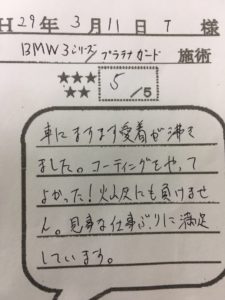 H29年 3月11日 T 様
BMW3シリーズ/プラチナガード 施術
★★★
★★ 5 /5
車にますます愛着が沸き
ました。コーティングをやって
よかった!火山灰にも負けませ
ん。見事な仕事ぶりに満足
しています。